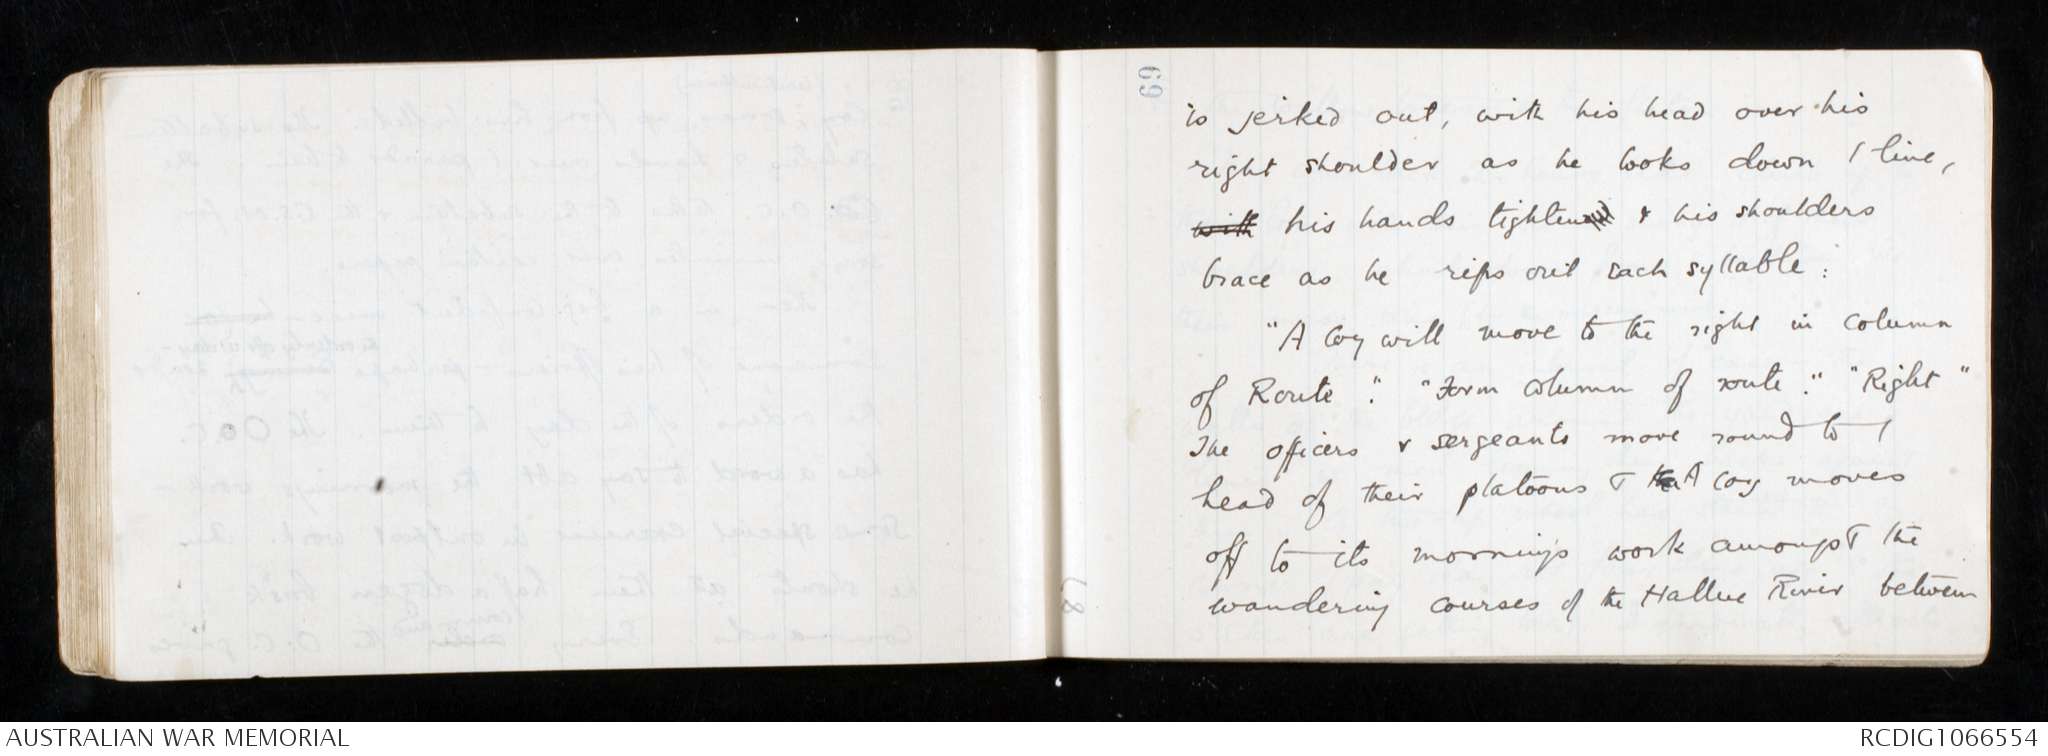 69
is jerked out, with his head over his
right shoulder as he looks down / line,
with his hands tighten & his shoulders
brace as he rips out each syllable:
"A Coy will move to the right in column
of Route." "Form column of route." "Right"
The officers & sergeants move round to /
head of their platoons & A Coy moves
off to its morning's work amongst the
wandering courses of the Hallue River between
AUSTRALIAN WAR MEMORIAL
RCDIG1066554